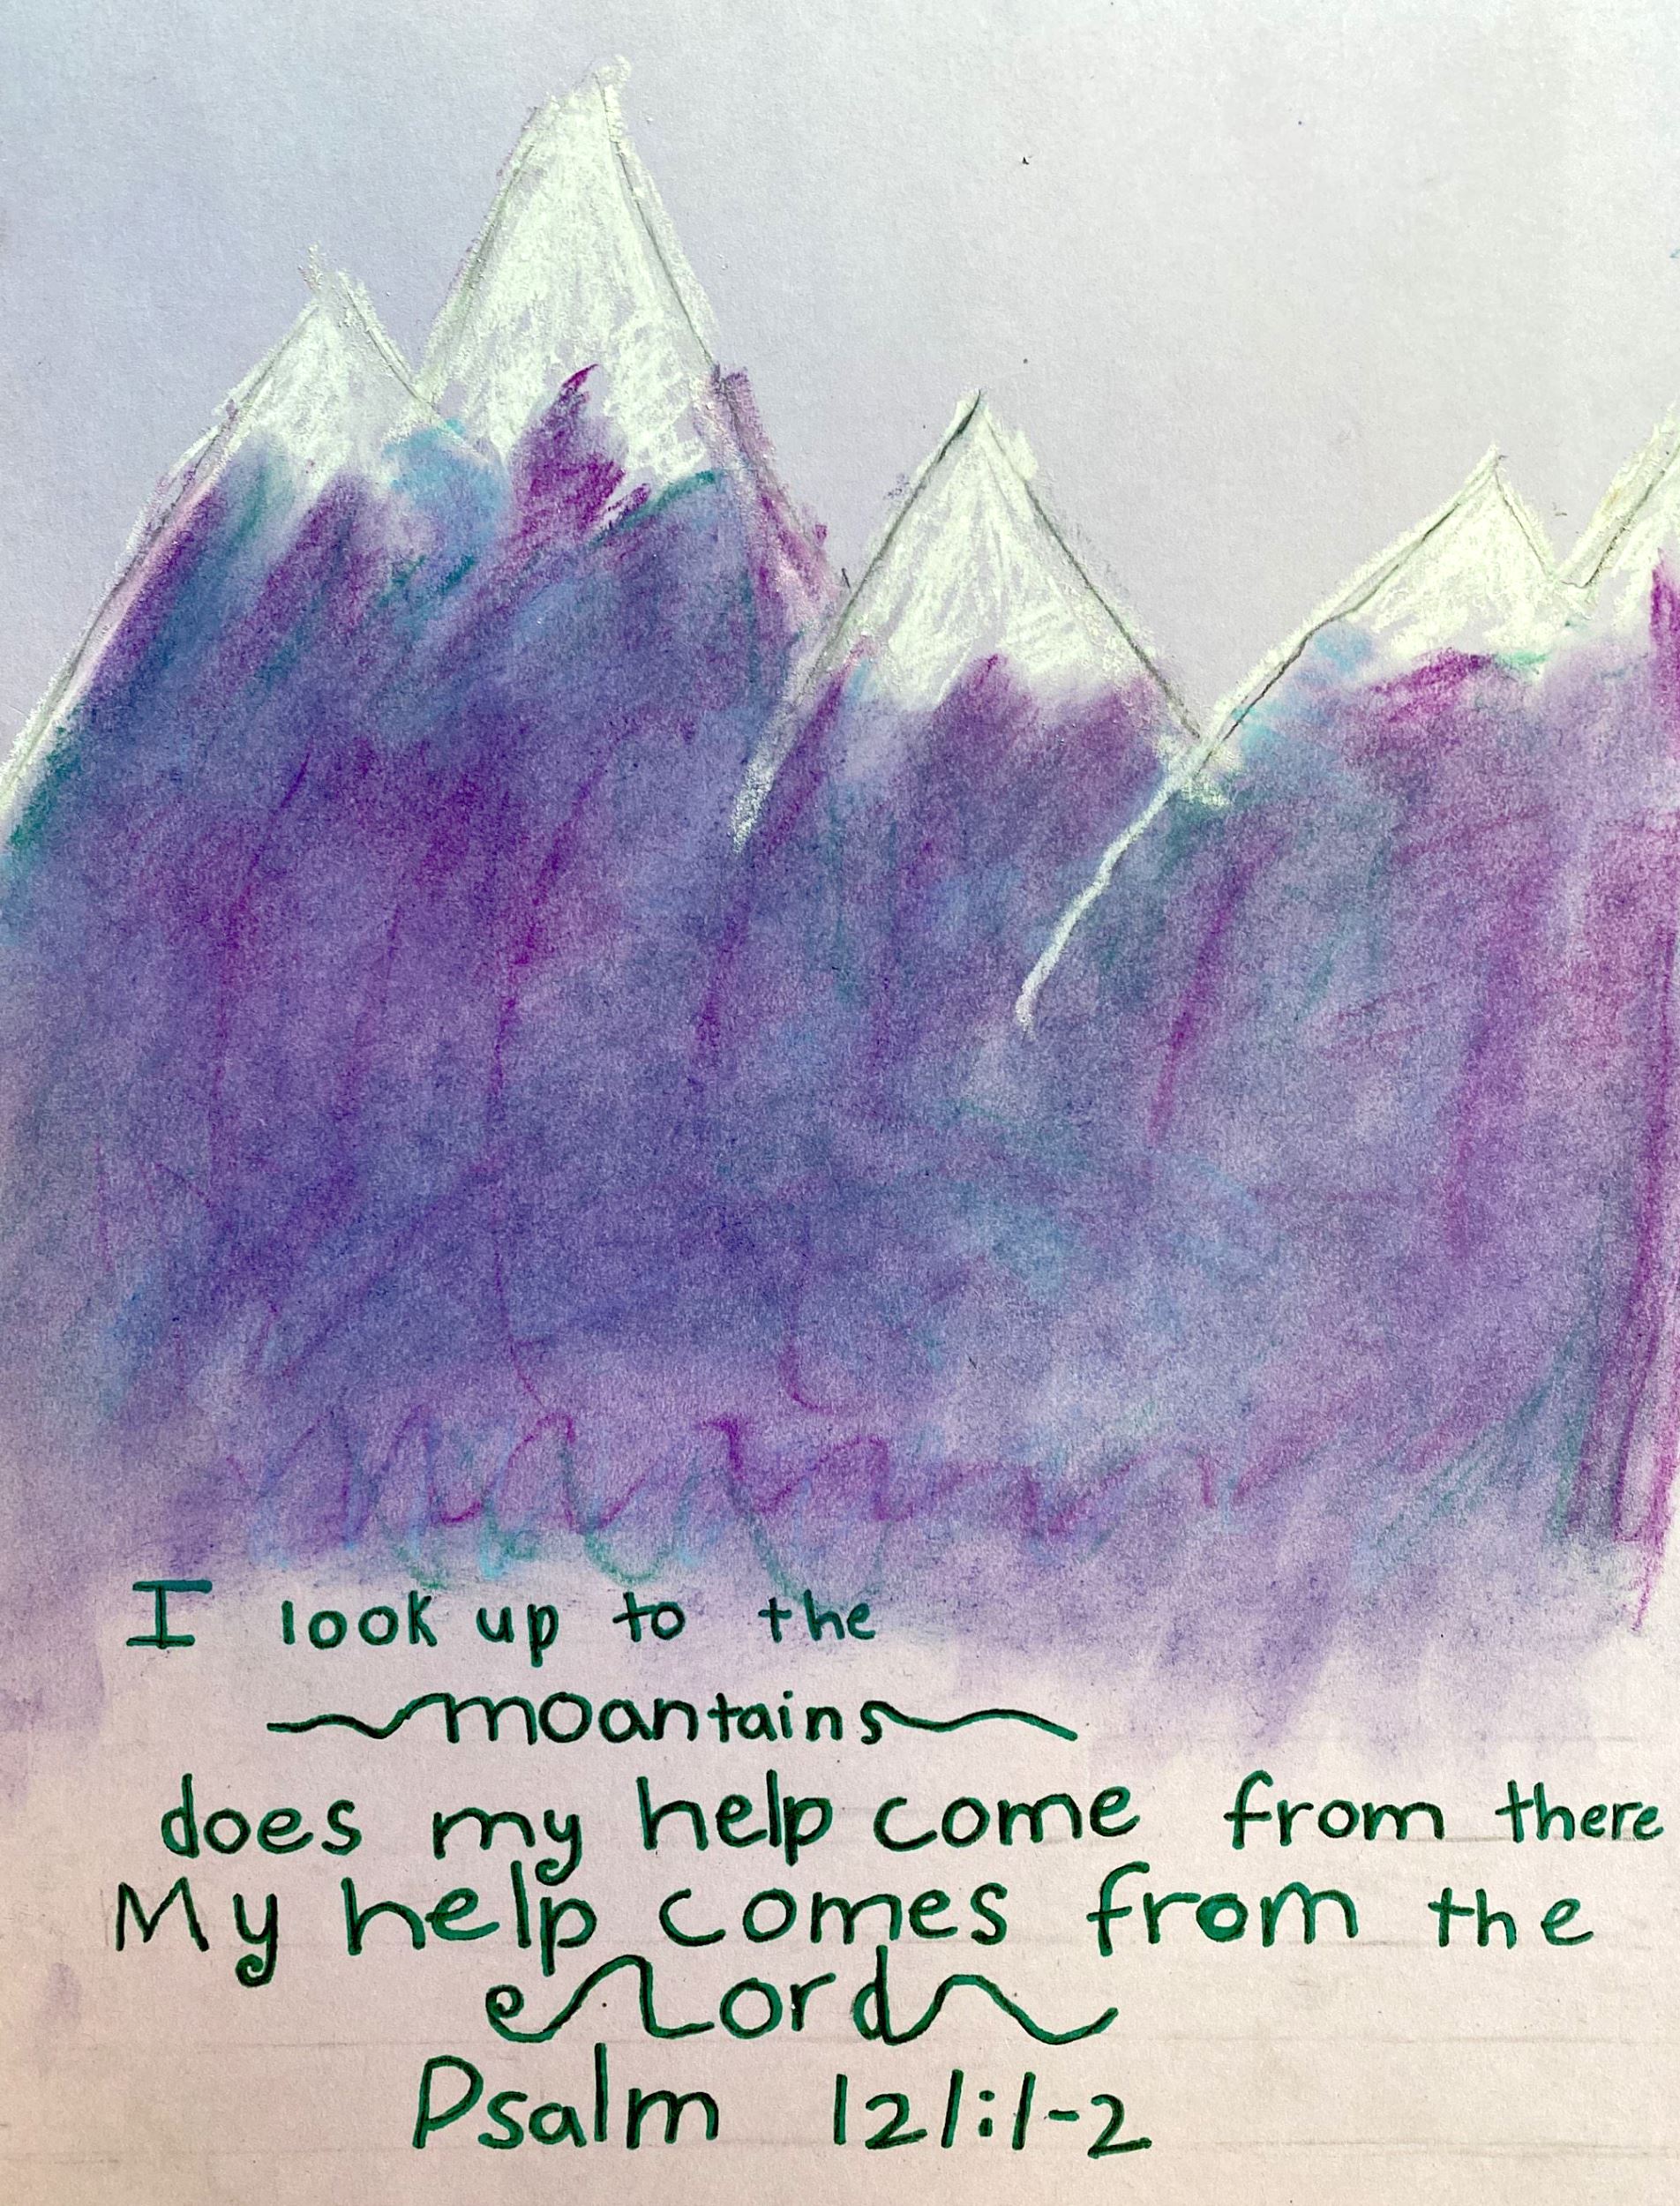 I look up to the
moantains
does my help come from there
My help comes from the
Lord
Psalm 121:1-2